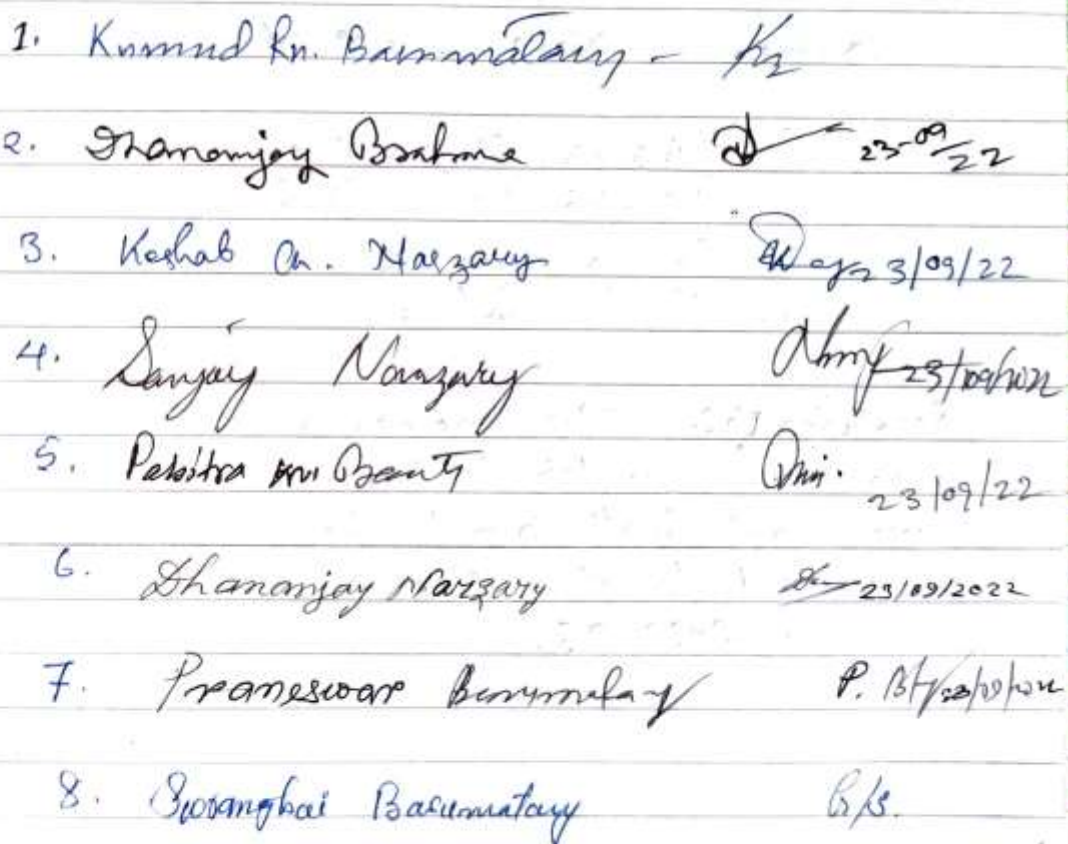 1. Kumud Rn. Basumatary - Kr
2. Dhananjay Brahma 23-09/22
3. Keshab Ch. Narzary 23/09/22
4. Sanjay Narzary 23/09/2022
5. Pabitra Kr. 23/09/22
6. Dhananjay Narzary 23/09/2022
7. Praneswar Basumatary P. Bty 23/09/2022
8. Basumatary